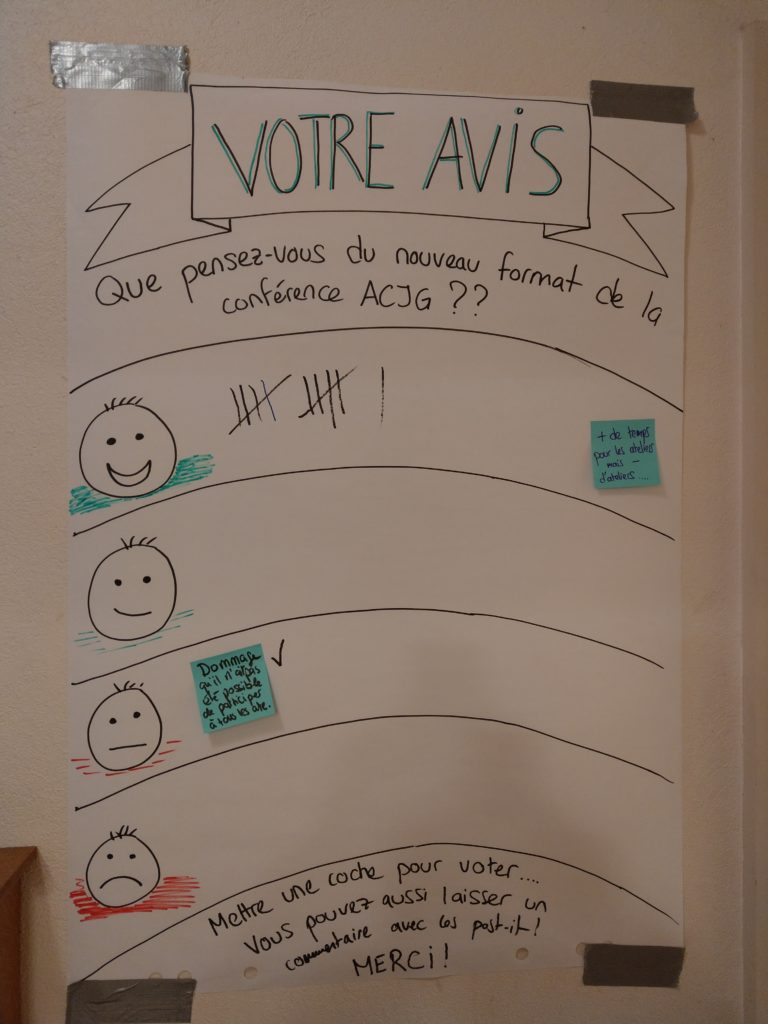 VOTRE AVIS
Que pensez-vous du nouveau format de la
conférence ACJG ??
+ de temps
pour les ateliers
mais -
d'ateliers....
Dommage
qu'il n'ait pas
été possible
de participer
à tous les ate.
Mettre une coche pour voter....
Vous pouvez aussi laisser un
commentaire avec les post-it!
MERCi!